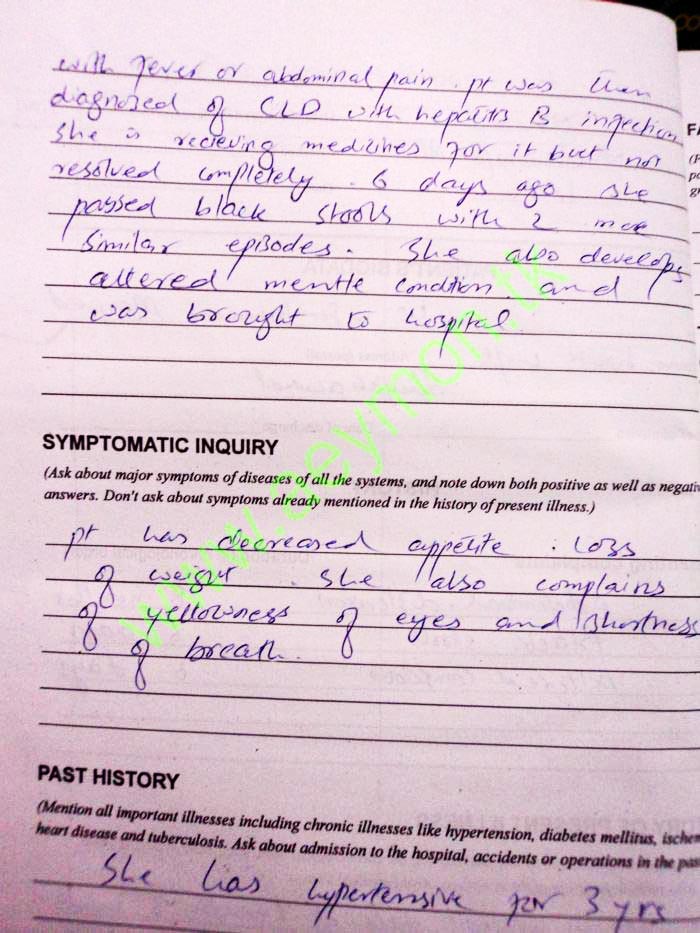 with fever or abdominal pain. pt was then
diagnozed of CLD with hepatitis B infection
She is recieving medicines for it but not
resolved completely. 6 days ago she
passed black stools with 2 more
similar episodes. She also develops
altered mentle condition and
was brought to hospital.
SYMPTOMATIC INQUIRY
(Ask about major symptoms of diseases of all the systems, and note down both positive as well as negativ
answers. Don't ask about symptoms already mentioned in the history of present illness.)
pt has decreased appetite. Loss
of weight. She also complains
of yellowness of eyes and shortness
of breath.
PAST HISTORY
(Mention all important illnesses including chronic illnesses like hypertension, diabetes mellitus, ischem
heart disease and tuberculosis. Ask about admission to the hospital, accidents or operations in the pas
She has hypertensive for 3 yrs
www.eeymon.tk
FA
(P
po
g